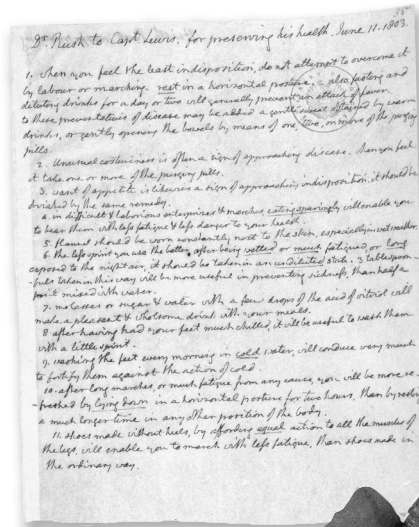 Dr. Rush to Capt. Lewis. for preserving his health. June 11. 1803.
1. when you feel the least indisposition, do not attempt to overcome it
by labour or marching. rest in a horizontal posture. also fasting and
diluting drinks for a day or two will generally prevent an attack of fever.
to these preventatives of disease may be added a gentle sweat obtained by warm
drinks, or gently opening the bowels by means of one, two, or more of the purging
pills.
2. Unusual costiveness is often a sign of approaching disease. when you feel
it take one or more of the purging pills.
3. want of appetite is likewise a sign of approaching indisposition. it should be
obviated by the same remedy.
4. in difficult & laborious enterprizes & marches, eating sparingly will enable you
to bear them with less fatigue & less danger to your health.
5. flannel should be worn constantly next to the skin, especially in wet weather.
6. the less spirit you use the better. after being wetted or much fatigued, or long
exposed to the night air, it should be taken in an undiluted state. 3 tablespoon-
-fuls taken in this way will be more useful in preventing sickness, than half a
pint mixed with water.
7. molasses or sugar & water with a few drops of the acid of vitriol will
make a pleasant & wholsome drink with your meals.
8 after having had your feet much chilled, it will be useful to wash them
with a little spirit.
9. washing the feet every morning in cold water, will conduce very much
to fortify them against the action of cold.
10. after long marches, or much fatigue from any cause, you will be more re-
-freshed by lying down in a horizontal posture for two hours, than by resting
a much longer time in any other position of the body.
11. shoes made without heels, by affording equal action to all the muscles of
the legs, will enable you to march with less fatigue, than shoes made in
the ordinary way.